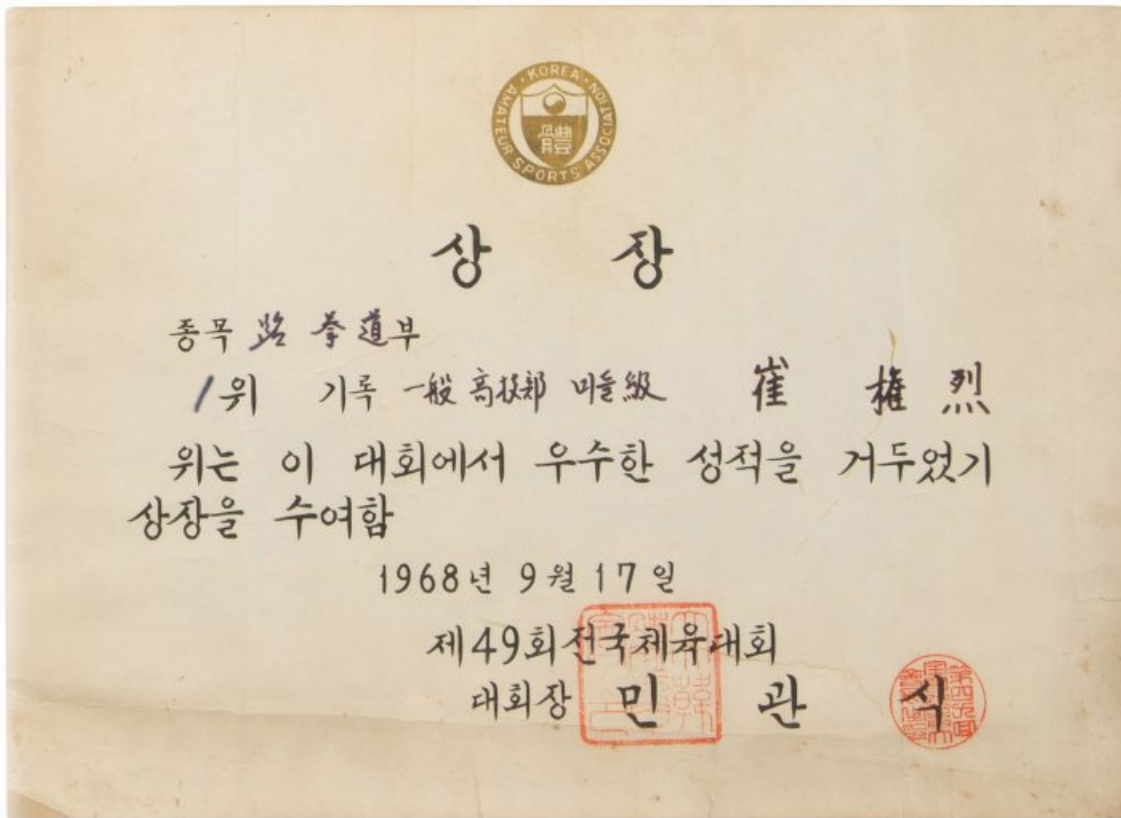 KOREA AMATEUR SPORTS ASSOCIATION NATION
體
상 장
종목 跆 拳 道 부
1위 기록 一般 高段部 미들級 崔 權 烈
위는 이 대회에서 우수한 성적을 거두었기
상장을 수여함
1968년 9월 17일
제49회전국체육대회
대회장 민 관 식